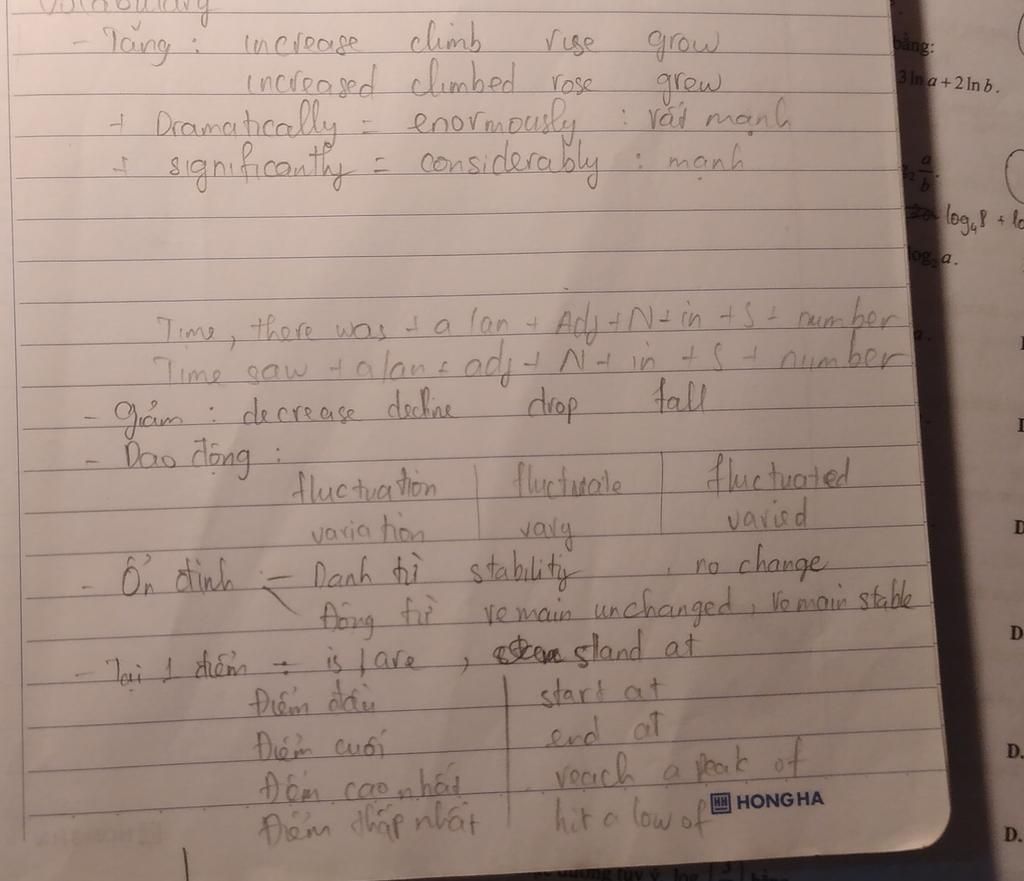 Vocabulary
- Tăng : increase climb rise grow
increased climbed rose grew
+ Dramatically = enormously : rất mạnh
+ significantly = considerably : mạnh
Time, there was + a /an + Adj + N + in + S + number
Time saw + a/an + adj + N + in + S + number
- Giảm : decrease decline drop fall
- Dao động :
fluctuation | fluctuate | fluctuated
variation | vary | varied
- Ổn định - Danh từ stability , no change
Động từ remain unchanged, remain stable
- Tại 1 điểm - is / are , stand at
Điểm đầu | start at
Điểm cuối | end at
Điểm cao nhất | reach a peak of
Điểm thấp nhất | hit a low of
HH HONG HA
bằng:
3 ln a + 2 ln b.
a/b.
log₄8 +
log₂ a.
D.
D.